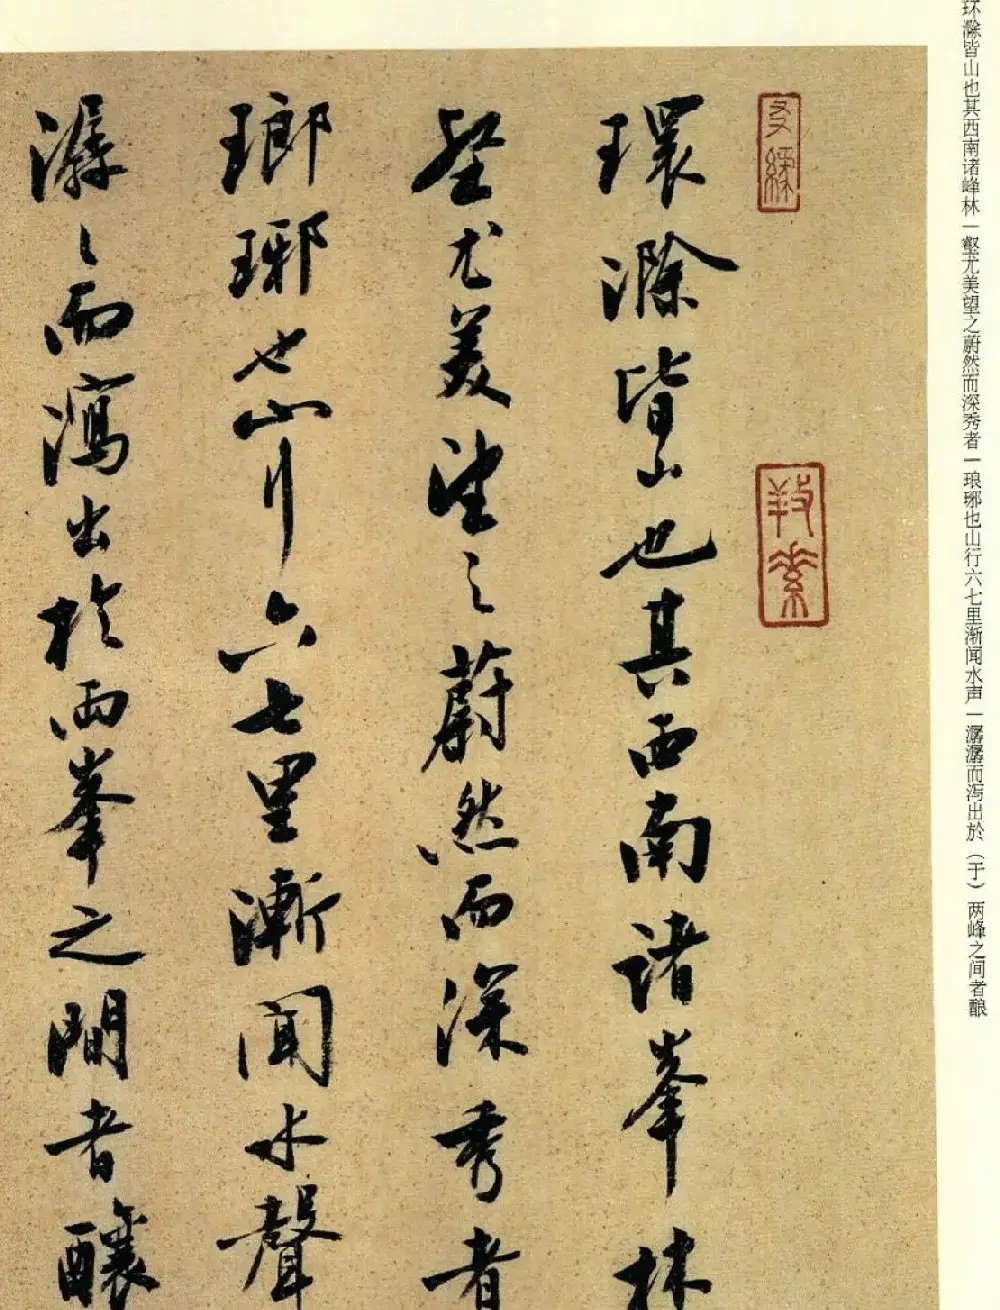 环滁皆山也其西南诸峰林一壑尤美望之蔚然而深秀者一琅琊也山行六七里渐闻水声一潺潺而泻出於（于）两峰之间者酿
環滁皆山也其西南諸峯林
壑尤美望之蔚然而深秀者
瑯琊也山行六七里漸聞水聲
潺〻而瀉出於兩峯之間者釀